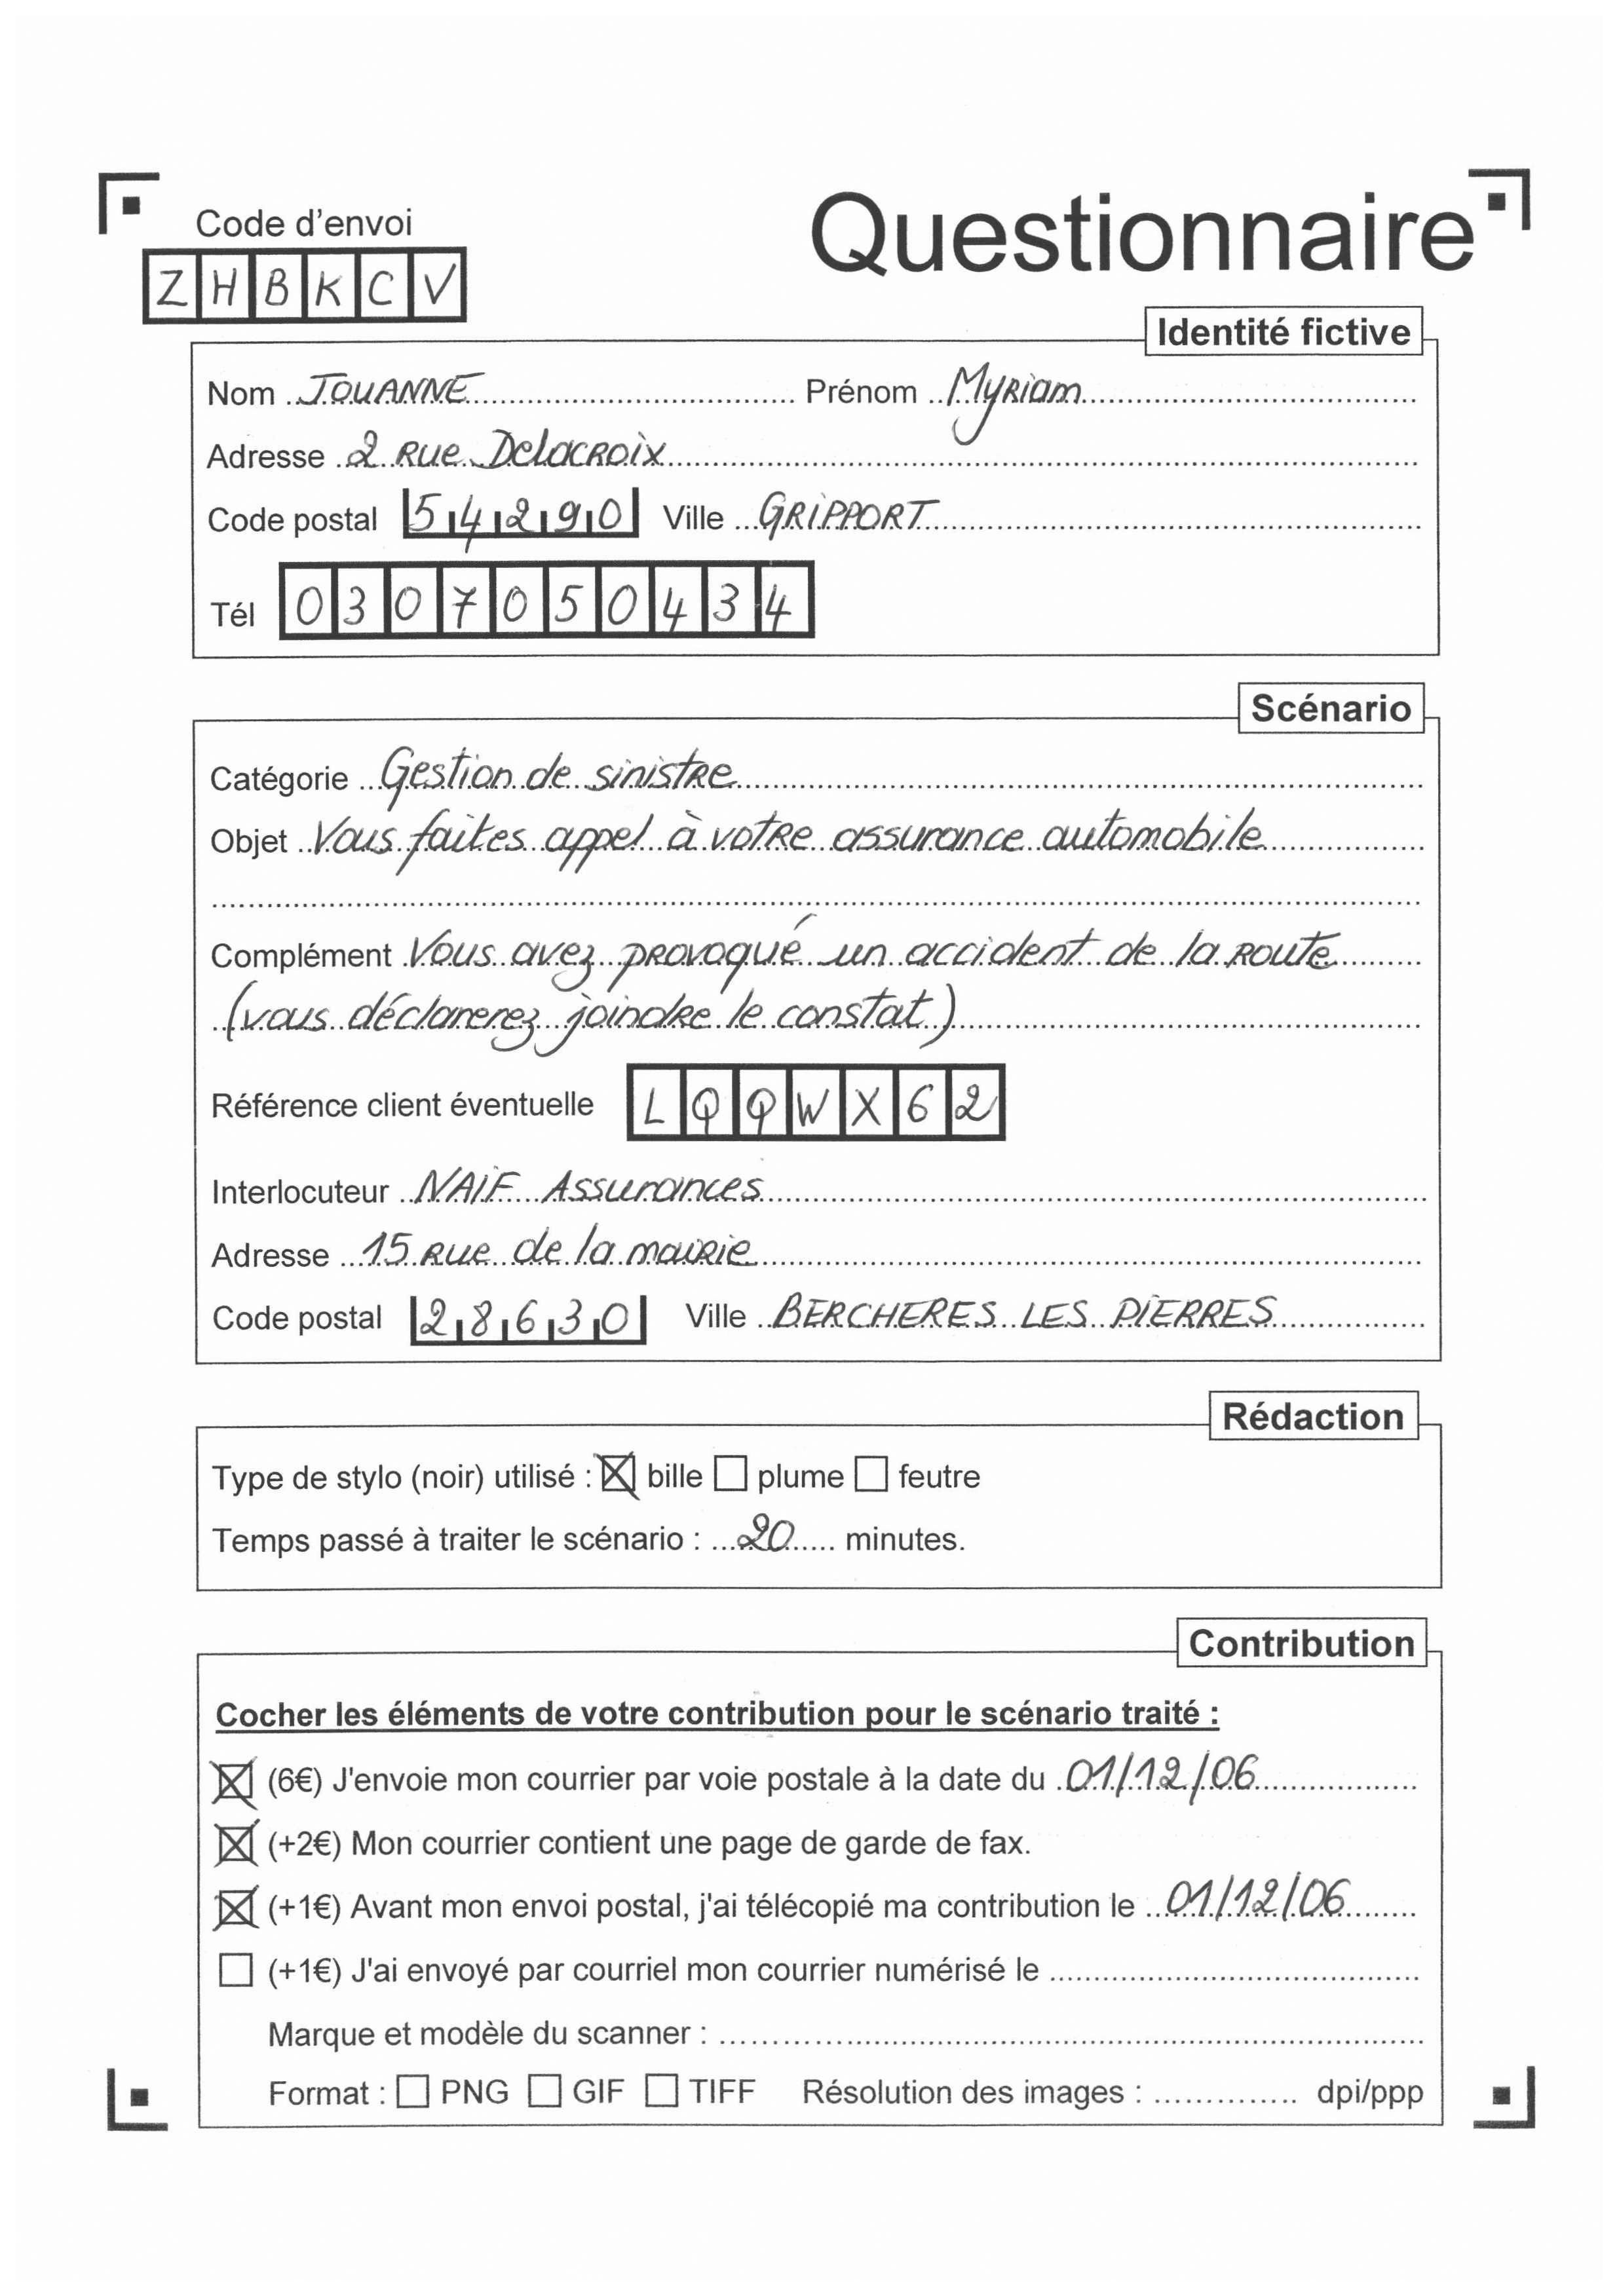 Code d'envoi
Questionnaire
ZHBKCV
Identité fictive
Nom JOUANNE Prénom Myriam
Adresse 2 Rue Delacroix
Code postal 54290 Ville GRIPPORT
Tél 0307050434
Scénario
Catégorie Gestion de sinistre
Objet Vous faites appel à votre assurance automobile
Complément Vous avez provoqué un accident de la route
(vous déclarerez joindre le constat)
Référence client éventuelle LQQWX62
Interlocuteur NAIF Assurances
Adresse 15 rue de la mairie
Code postal 28630 Ville BERCHERES LES PIERRES
Rédaction
Type de stylo (noir) utilisé : ☒ bille ☐ plume ☐ feutre
Temps passé à traiter le scénario : 20 minutes.
Contribution
Cocher les éléments de votre contribution pour le scénario traité :
☒ (6€) J'envoie mon courrier par voie postale à la date du 01/12/06
☒ (+2€) Mon courrier contient une page de garde de fax.
☒ (+1€) Avant mon envoi postal, j'ai télécopié ma contribution le 01/12/06
☐ (+1€) J'ai envoyé par courriel mon courrier numérisé le
Marque et modèle du scanner :
Format : ☐ PNG ☐ GIF ☐ TIFF Résolution des images : dpi/ppp